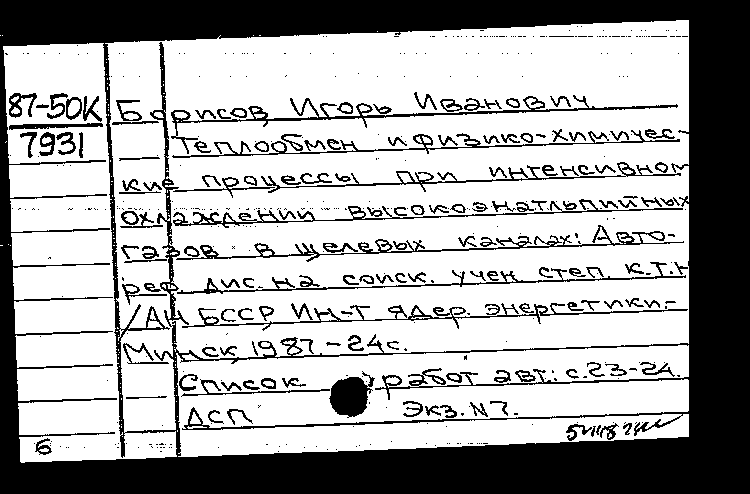 87-50К Борисов, Игорь Иванович.
7931 Теплообмен и физико-химичес-
кие процессы при интенсивном
охлаждении высокоэнатльпийтных
газов в щелевых каналах: Авто-
реф. дис. на соиск. учен. степ. к.т.н
/АН БССР, Ин-т ядер. энергетики.-
Минск, 1987.-24с.
Список работ авт.: с.23-24.
ДСП Экз. N7.
б